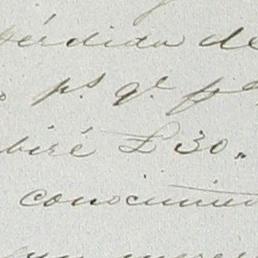 pérdida de
ps. qe. pa
biré £30,,
conocimien